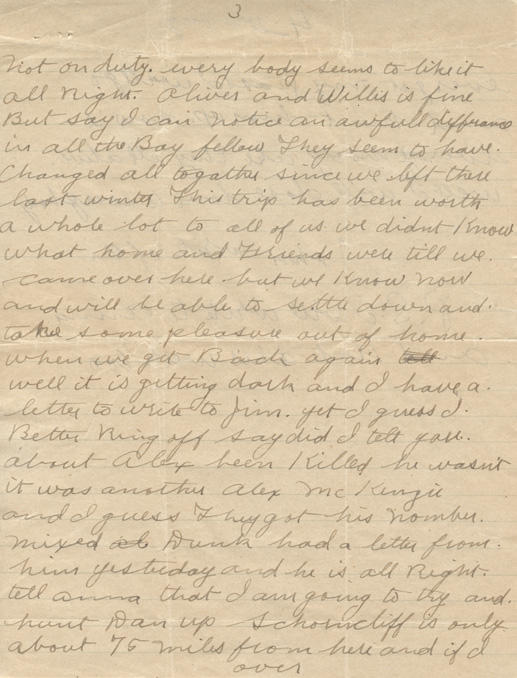 3
Not on duty. every body seems to like it
all right. Oliver and Willis is fine
But say I can notice an awfull diffrance
in all the Bay fellow They seem to have.
Changed all togather since we left there
last winter This trip has been worth
a whole lot to all of us we didnt Know
what home and Friends were till we.
came over here. but we Know now
and will be able to settle down and.
take some pleasure out of home.
when we get Back again tell
well it is getting dark and I have a.
letter to write to Jim. yet I guess I.
Better Ring off say did I tell you.
about Alex been Killed he wasn't
it was another Alex McKenzie
and I guess They got his number.
mixed Dunk had a letter from.
him yesterday and he is all Right.
tell anna that I am going to try and.
hunt Dan up Schorncliff is only
about 75 miles from here and if I
over